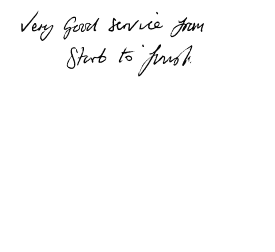 Very Good service from
Start to finish.